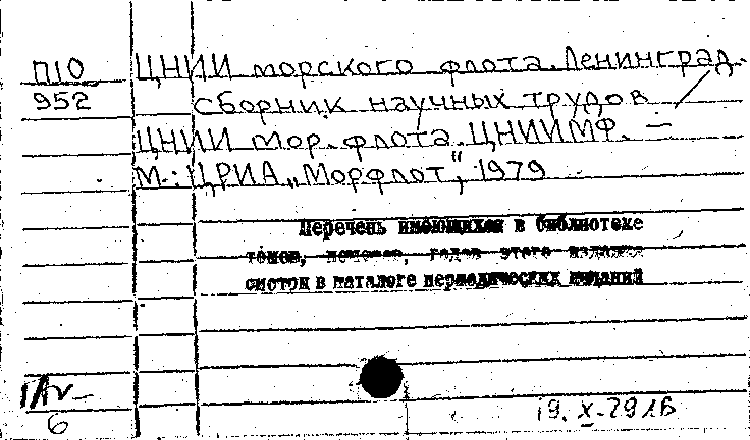 П10 ЦНИИ морского флота. Ленинград.
952 Сборник научных трудов /
ЦНИИ мор. флота. ЦНИИМФ. —
М.: ЦРИА „Морфлот“, 1979
Перечень имеющихся в библиотеке
томов, номеров, годов этого издания
смотри в каталоге периодических изданий
6
19. X-79